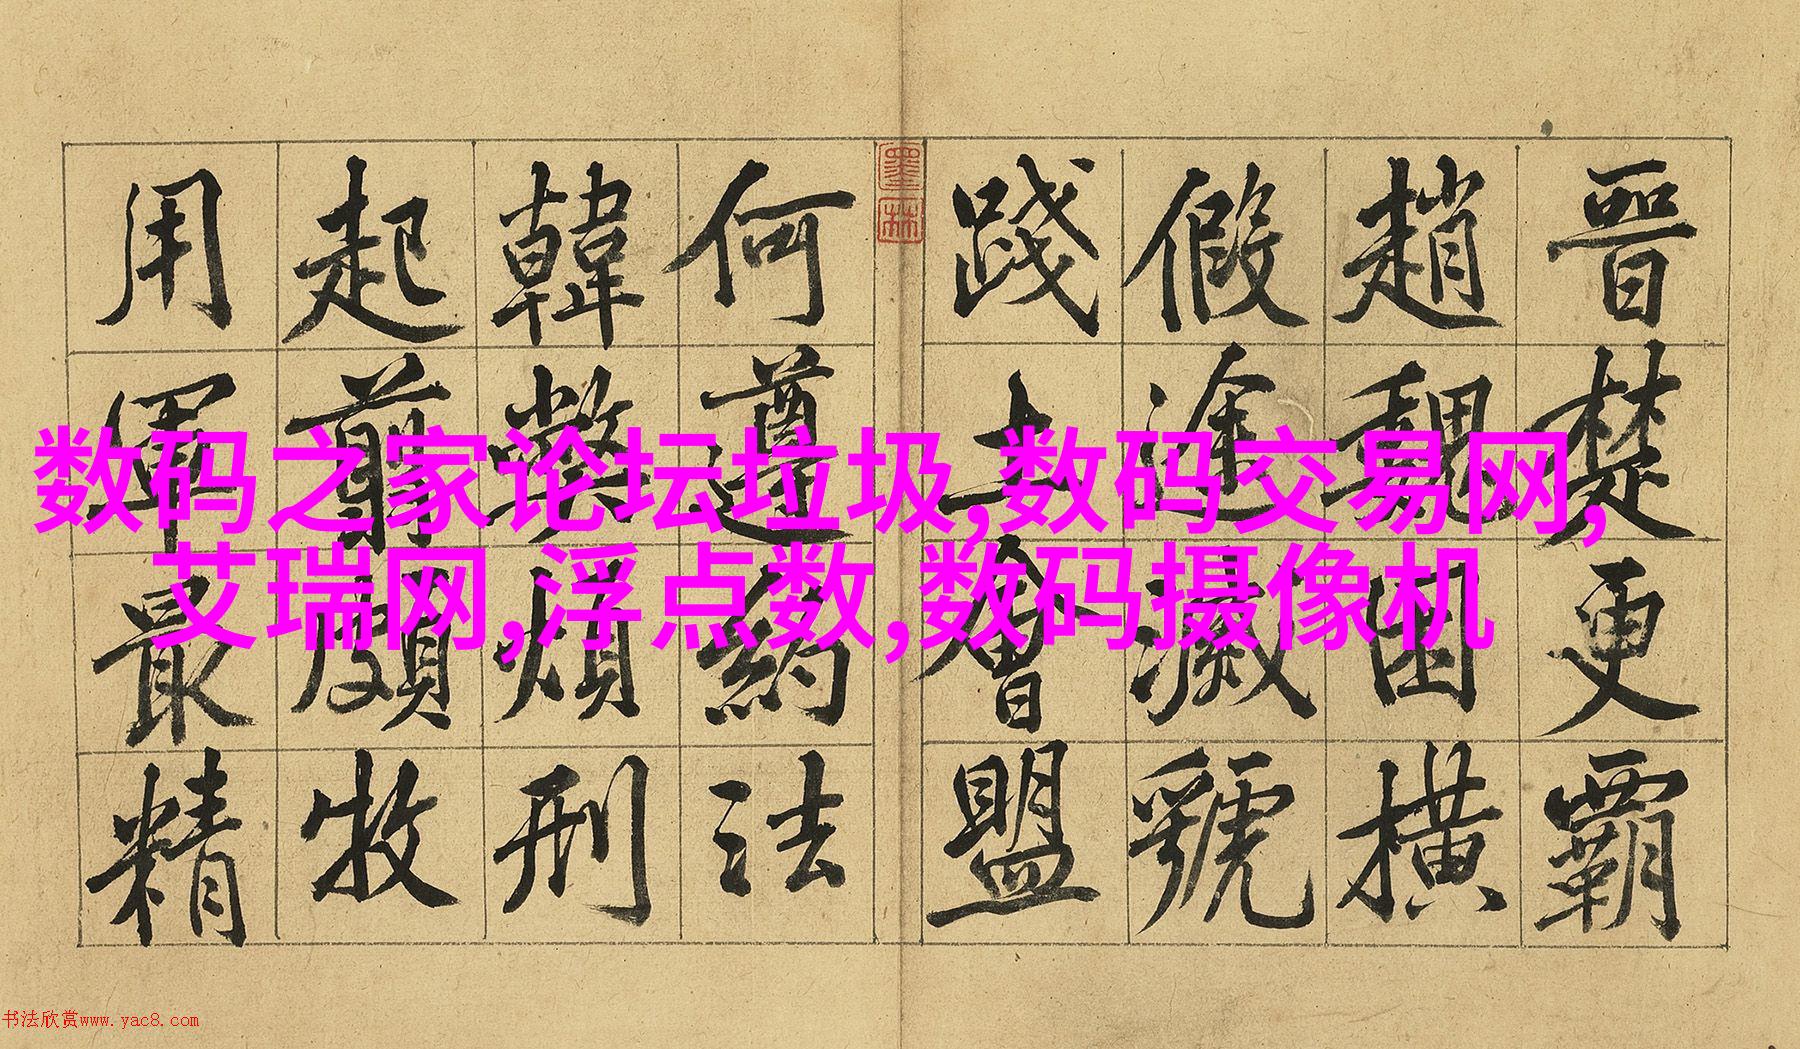 晉楚更霸
趙魏困橫
假途滅虢
踐土會盟
墨林
何遵約法
韓弊煩刑
起翦頗牧
用軍最精
数码之家论坛垃圾,数码交易网,
艾瑞网,浮点数,数码摄像机
书法欣赏www.yac8.com